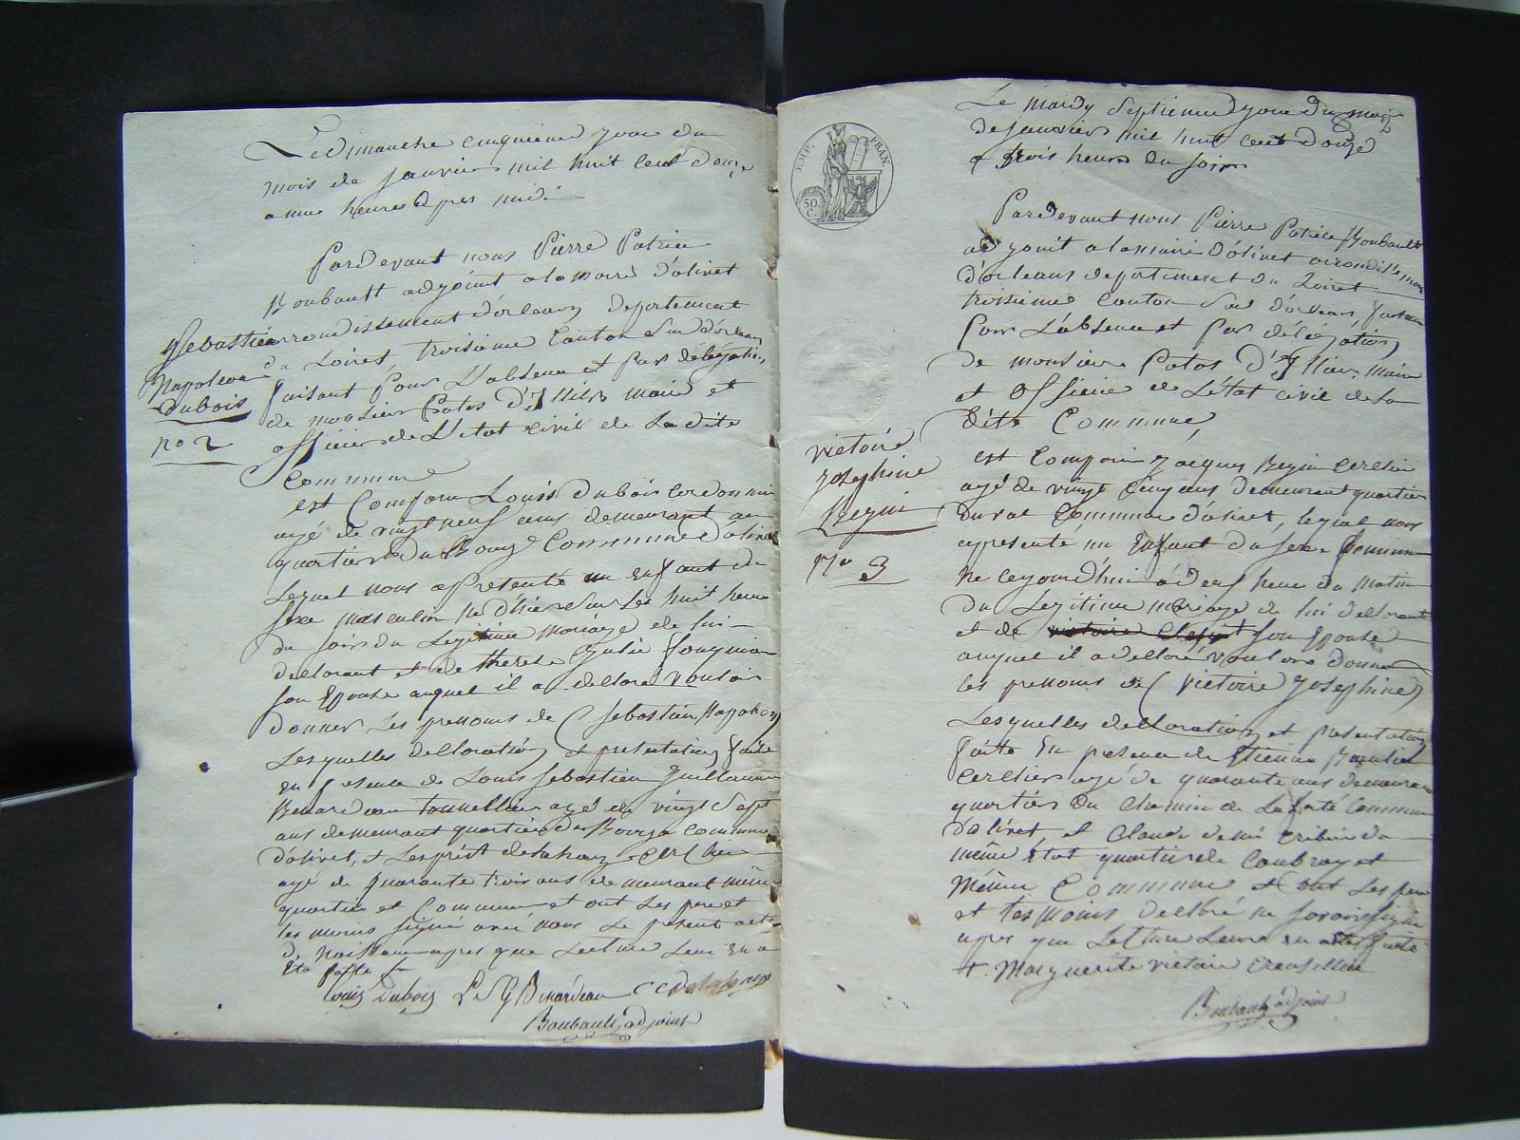 Le dimanche cinquieme jour du
mois de janvier mil huit cent douze
a une heures apres midi
Pardevant nous Pierre Patrice
Boubault adjoint a la mairie d'olivet
arrondissement d'orleans departement
du Loiret, troisieme Canton Sud d'orleans
faisant pour L'absence et par délégation
de monsieur Patas d'Illiers maire et
officier de L'état civil de La dite
Commune
Sebastien
Napoleon
Dubois
no 2
est Comparu Louis Dubois cordonnier
agé de vingt neuf ans demeurant au
quartier du Bourg Commune d'olivet
Lequel nous a presenté un enfant du
sexe masculin né d'hier sur les huit heure
du soir du Legitime mariage de lui
declarant et de therese Julie
son Epouse auquel il a declaré vouloir
donner Les prenoms de (Sebastien Napoleon)
Les quelles declaration et presentation faite
en presence de Louis Sebastien Guillaume
Benardeau tonnellier agé de vingt sept
ans demeurant quartier du Bourg commune
d'olivet, et
agé de quarante trois ans demeurant même
quartier et Commune et ont Les pere et
temoins signé avec nous Le present acte
de Naissance apres que Lecture Leur en a
Eté faite
Louis Dubois L S G Benardeau
Boubault adjoint
EMP. FRAN.
50
C.
Le mardy Septieme jour du mois
de janvier mil huit cent douze
a trois heures du soir
Pardevant nous Pierre Patrice Boubault
adjoint a la mairie d'olivet arrondissement
d'orleans departement du Loiret
troisieme Canton Sud d'orleans, faisant
pour L'absence et par délégation
de monsieur Patas d'Illiers maire
et officier de L'état civil de La
dite Commune,
victoire
Josephine
Begui
No 3
est Comparu Jacques Begin Cerclier
agé de vingt Cinq ans demeurant quartier
du val Commune d'olivet, lequel nous
a presenté un Enfant du sexe feminin
né ce jourd'hui a deux heure du matin
du Legitime mariage de lui declarant
et de son Epouse
auquel il a declaré vouloir donner
les prenoms de (Victoire Josephine)
Lesquelles declaration et presentation
faitte En presence de Etienne
Cerclier agé de quarante ans demeurant
quartier du Chemin de Laferté Commune
d'olivet, et Claude
même état quartier de Caubray et
Même Commune et ont Les pere
et tesmoins declaré ne savoir signer
apres que Lecture Leure en a été faite
+. Marguerite victoire
Boubault adjoint